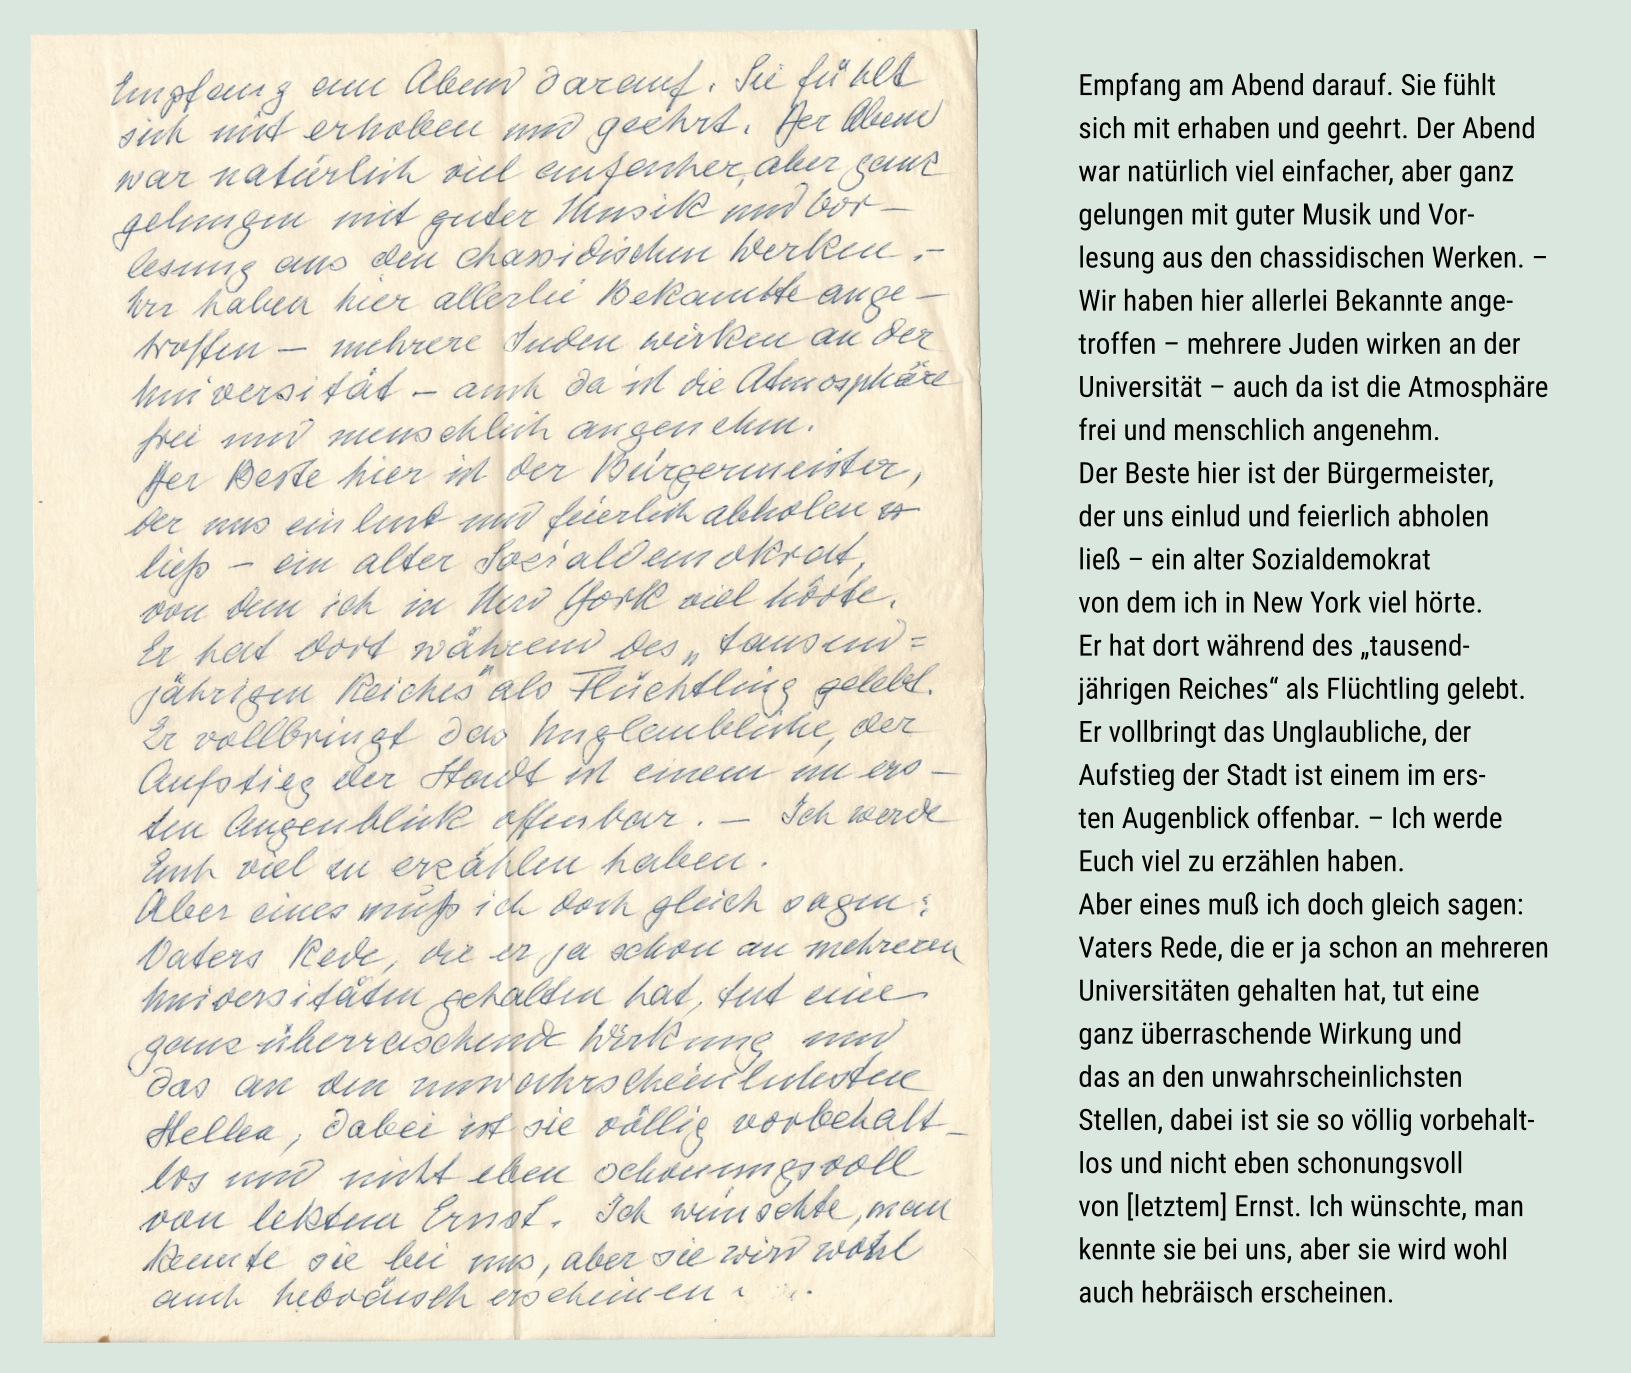 Empfang am Abend darauf. Sie fühlt
sich mit erhoben und geehrt. Der Abend
war natürlich viel einfacher, aber ganz
gelungen mit guter Musik und Vor–
lesung aus den chassidischen Werken. –
Wir haben hier allerlei Bekannte ange–
troffen – mehrere Juden wirken an der
Universität – auch da ist die Atmosphäre
frei und menschlich angenehm.
Der Beste hier ist der Bürgermeister,
der uns einlud und feierlich abholen
ließ – ein alter Sozialdemokrat,
von dem ich in New York viel hörte.
Er hat dort während des „tausend=
jährigen Reiches" als Flüchtling gelebt.
Er vollbringt das Unglaubliche, der
Aufstieg der Stadt ist einem im ers–
ten Augenblick offenbar. – Ich werde
Euch viel zu erzählen haben.
Aber eines muß ich doch gleich sagen:
Vaters Rede, die er ja schon an mehreren
Universitäten gehalten hat, tut eine
ganz überraschende Wirkung und
das an den unwahrscheinlichsten
Stellen, dabei ist sie völlig vorbehalt–
los und nicht eben schonungsvoll
von Ernst. Ich wünschte, man
kennte sie bei uns, aber sie wird wohl
auch hebräisch erscheinen.
Empfang am Abend darauf. Sie fühlt
sich mit erhaben und geehrt. Der Abend
war natürlich viel einfacher, aber ganz
gelungen mit guter Musik und Vor-
lesung aus den chassidischen Werken. –
Wir haben hier allerlei Bekannte ange-
troffen – mehrere Juden wirken an der
Universität – auch da ist die Atmosphäre
frei und menschlich angenehm.
Der Beste hier ist der Bürgermeister,
der uns einlud und feierlich abholen
ließ – ein alter Sozialdemokrat
von dem ich in New York viel hörte.
Er hat dort während des „tausend-
jährigen Reiches“ als Flüchtling gelebt.
Er vollbringt das Unglaubliche, der
Aufstieg der Stadt ist einem im ers-
ten Augenblick offenbar. – Ich werde
Euch viel zu erzählen haben.
Aber eines muß ich doch gleich sagen:
Vaters Rede, die er ja schon an mehreren
Universitäten gehalten hat, tut eine
ganz überraschende Wirkung und
das an den unwahrscheinlichsten
Stellen, dabei ist sie so völlig vorbehalt-
los und nicht eben schonungsvoll
von [letztem] Ernst. Ich wünschte, man
kennte sie bei uns, aber sie wird wohl
auch hebräisch erscheinen.